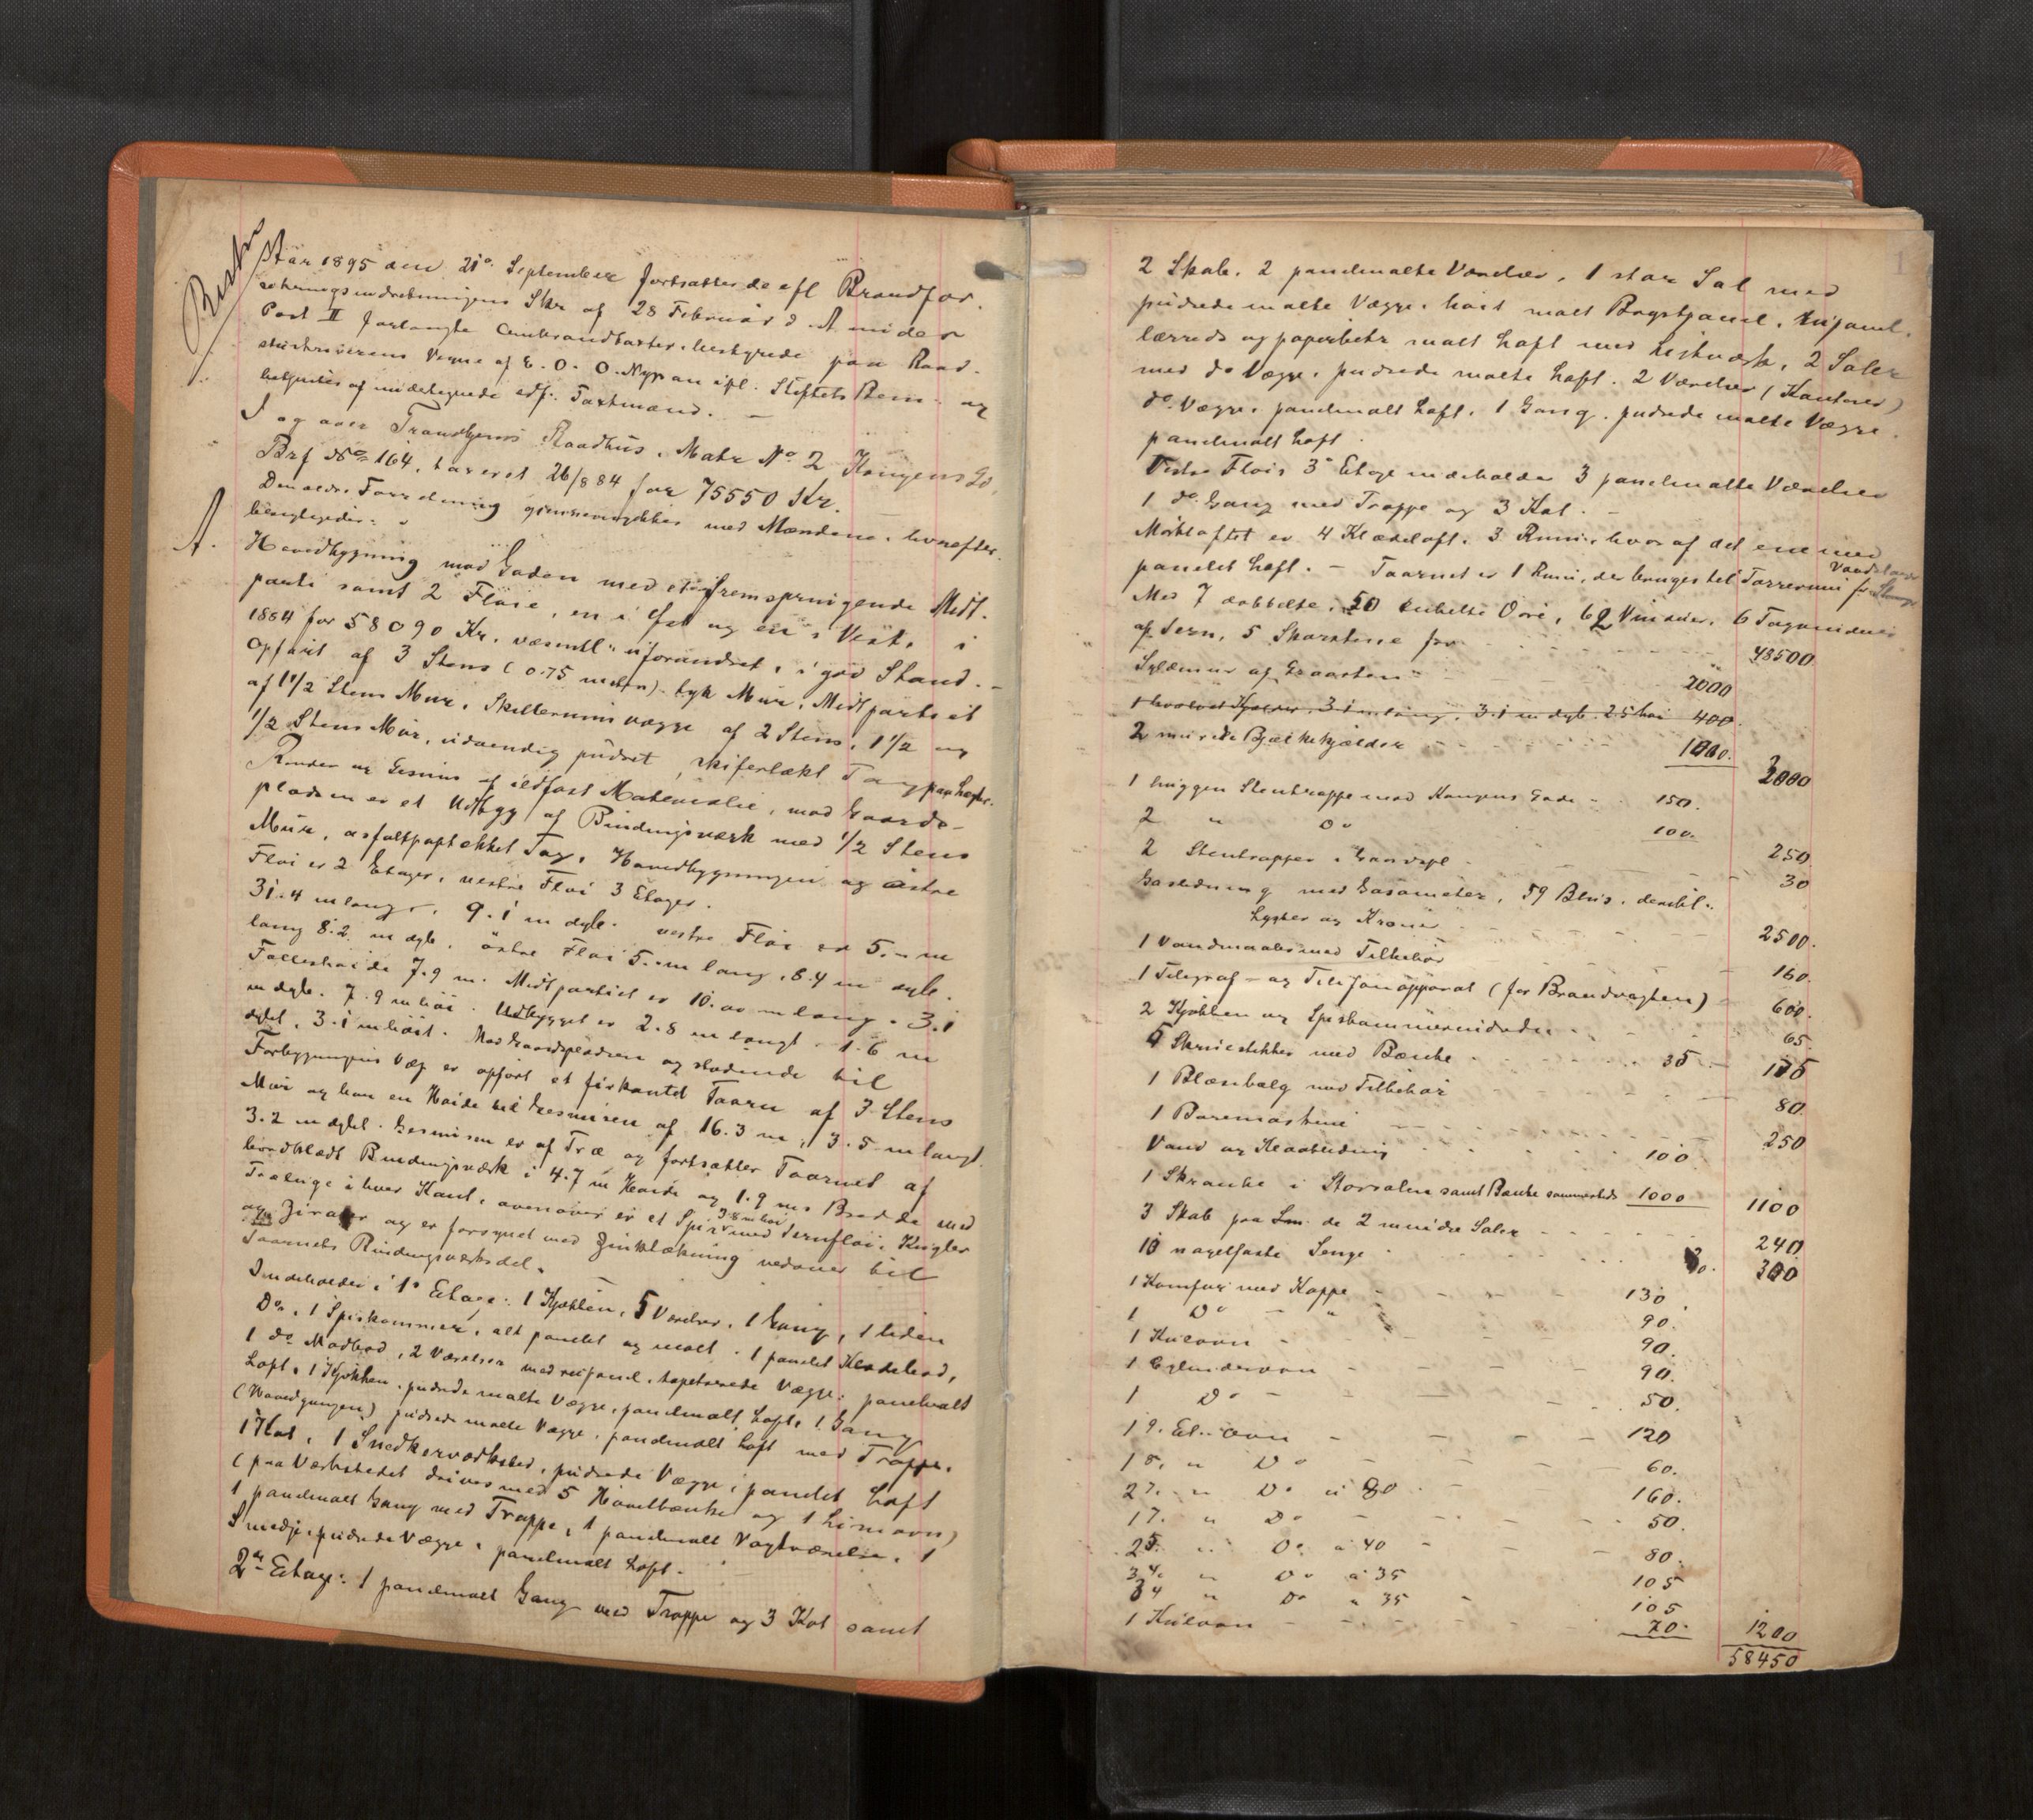 Aar 1895 den 21de September fortsattes de efl Brandfor-
sikringsindretningens Skr af 28 Februar d. A under
Post II forlangte Ombrandtaxter, bestyrede paa Raad-
stuskriverens Vegne af E. O. O. Nypan ifl. Stiftets Bem. og
betjentes af undertegnede edf. Taxtmænd. —
I og over Trondhjems Raadhus, Matr No 2 Kongens Gd,
Brf No 164, taxeret 26/8 84 for 75550 Kr.
Den ældre Forretning gjennemgikkes med Mændene, hvorefter
besigtigedes:
A.
Hovedbygning mod Gaden med et fremspringende Midt-
parti samt 2 Fløie, en i Øst og en i Vest, i
1884 for 58090 Kr. væsentl. uforandret, i god Stand. —
Opført af 3 Stens (0.75 meter) tyk Mur, Midtpartiet
af 1 1/2 Stens Mur, Skillerumsvægge af 2 Stens, 1 1/2 og
1/2 Stens Mur, udvendig pudset, skifertækt Tag
Render og Gesims af ildfast Materialie, mod Gaards-
pladsen er et Udbyg af Bindingsværk med 1/2 Stens
Mur, asfaltpaptækket Tag. Hovedbygningen og østre
Fløi er 2 Etager, vestre Fløi 3 Etager.
31.4 m lang, 9.1 m dyb. vestre Fløi er 5.- m
lang 8.2 m dyb. østre Fløi 5.- m lang, 8.4 m dyb.
Fælleshøide 7.9 m. Midtpartiet er 10.00 m lang, 3.1
m dyb. 7.9 m høi. Udbygget er 2.8 m langt, 1.6 m
dybt, 3.1 m høit. Mod Gaardspladsen og stødende til
Forbygningens Væg er opført et firkantet Taarn af 3 Stens
Mur og har en Høide til Gesimsen af 16.3 m, 3.5 m langt
3.2 m dybt. Gesimsen er af Træ og fortsætter Taarnet af
bordklædt Bindingsværk i 4.7 m Høide og 1.9 m Bredde med
Træluge i hver Kant, ovenover er et Spir 3.8 m høi med Jernfløi, Kugler
og Zirater og er forsynet med Zinktækning nedover til
Taarnets Bindingsværksdel.
Indeholder i 1ste Etage: 1 Kjøkken, 5 Værelser, 1 Gang, 1 liden
Do, 1 Spiskammer, alt panelet og malt. 1 panelet Klædebod,
1 do Madbod, 2 Værelser med rupanel, tapetserede Vægge, panelmalt
Loft, 1 Kjøkken, pudsede malte Vægge, panelmalt Loft. 1 Gang
(Hovedgangen) pudsede malte Vægge, panelmalt Loft med Trappe.
1 Kot, 1 Snedkerværksted, pudsede Vægge, panelet Loft
(paa Værkstedet drives med 5 Høvelbænke og 1 Limovn)
1 panelmalt Gang med Trappe, 1 panelmalt Vagtværelse, 1
Smedje, pudsede Vægge, panelmalt Loft.
2den Etage: 1 panelmalt Gang med Trappe og 3 Kot samt
2 Skab, 2 panelmalte Værelser, 1 stor Sal med
pudsede malte Vægge, høit malt Brystpanel, rupanel,
lærreds og papirbetr malt Loft med Listværk, 2 Saler
med do Vægge, pudsede malte Loft. 2 Værelser (Kontorer)
do Vægge, panelmalt Loft, 1 Gang, pudsede malte Vægge
panelmalt Loft.
Vestre Fløis 3die Etage indeholder 3 panelmalte Værelser
1 do Gang med Trappe og 3 Kot. —
Mørkloftet er 4 Klædeloft, 3 Rum, hvoraf det ene med
panelet Loft. — Taarnet er 1 Rum, der bruges til Tørrerum for
Med 7 dobbelte, 50 enkelte Døre, 62 Vinduer, 6 Tagvinduer
af Jern, 5 Skorstene for 48500
Sylemur af Graasten 2000
1 hvælvet Kjælder 3.1 m lang, 3.1 m dyb 2.5 høi 400
2 murede Bjælkekjælder 1000. 2000
1 huggen Stentrappe mod Kongens Gade 150.
2 " Do 100. 250
2 Stentrapper i Gaardspl. 30
Gasledning med Gasometer, 59 Blus, dertil
Lygter og Kroner 2500.
1 Vandmaaler med Tilbehør 160.
1 Telegraf- og Telefonapparat (for Brandvagten) 600.
2 Kjøkken og Spiskammerindreder 65
5 Skruestikker med Bænke 35 175
1 Blæsebelg med Tilbehør 80
1 Boremaskine 250
Vand og Kloakledning 100
1 Skranke i Storsalen samt Bænke sammesteds 1000 1100
3 Skab paa Lm. de 2 mindre Saler 240
10 nagelfaste Senge 30. 300
1 Komfur med Kappe 130
1 Do — " 90.
1 Kulovn 90.
1 Cylinderovn 90.
1 Do 50.
1 9. Et. Ovn 120
1 8. " Do 60.
2 7. " Do à 80 160.
1 7. " Do 50.
2 5. " Do à 40 80.
3 4. " Do à 35 105
3 4 " Do " 35 105
1 Kulovn 70. 1200
58450